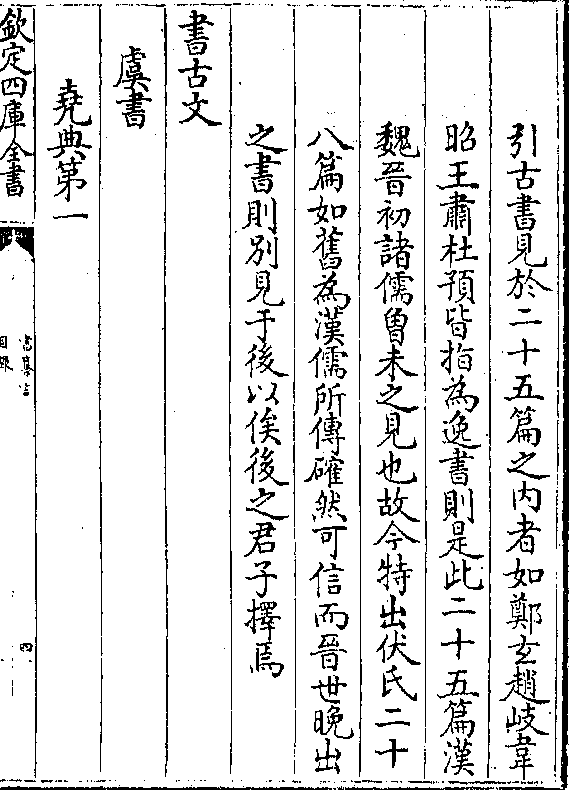 引古書見於二十五篇之内者如鄭玄趙岐韋
昭王肅杜預皆指為逸書則是此二十五篇漢
魏晉初諸儒曽未之見也故今特出伏氏二十
八篇如舊為漢儒所傳確然可信而晉世晚出
之書則别見于後以俟後之君子擇焉
書古文
虞書
堯典第一
欽定四庫全書
書纂言
目録
四